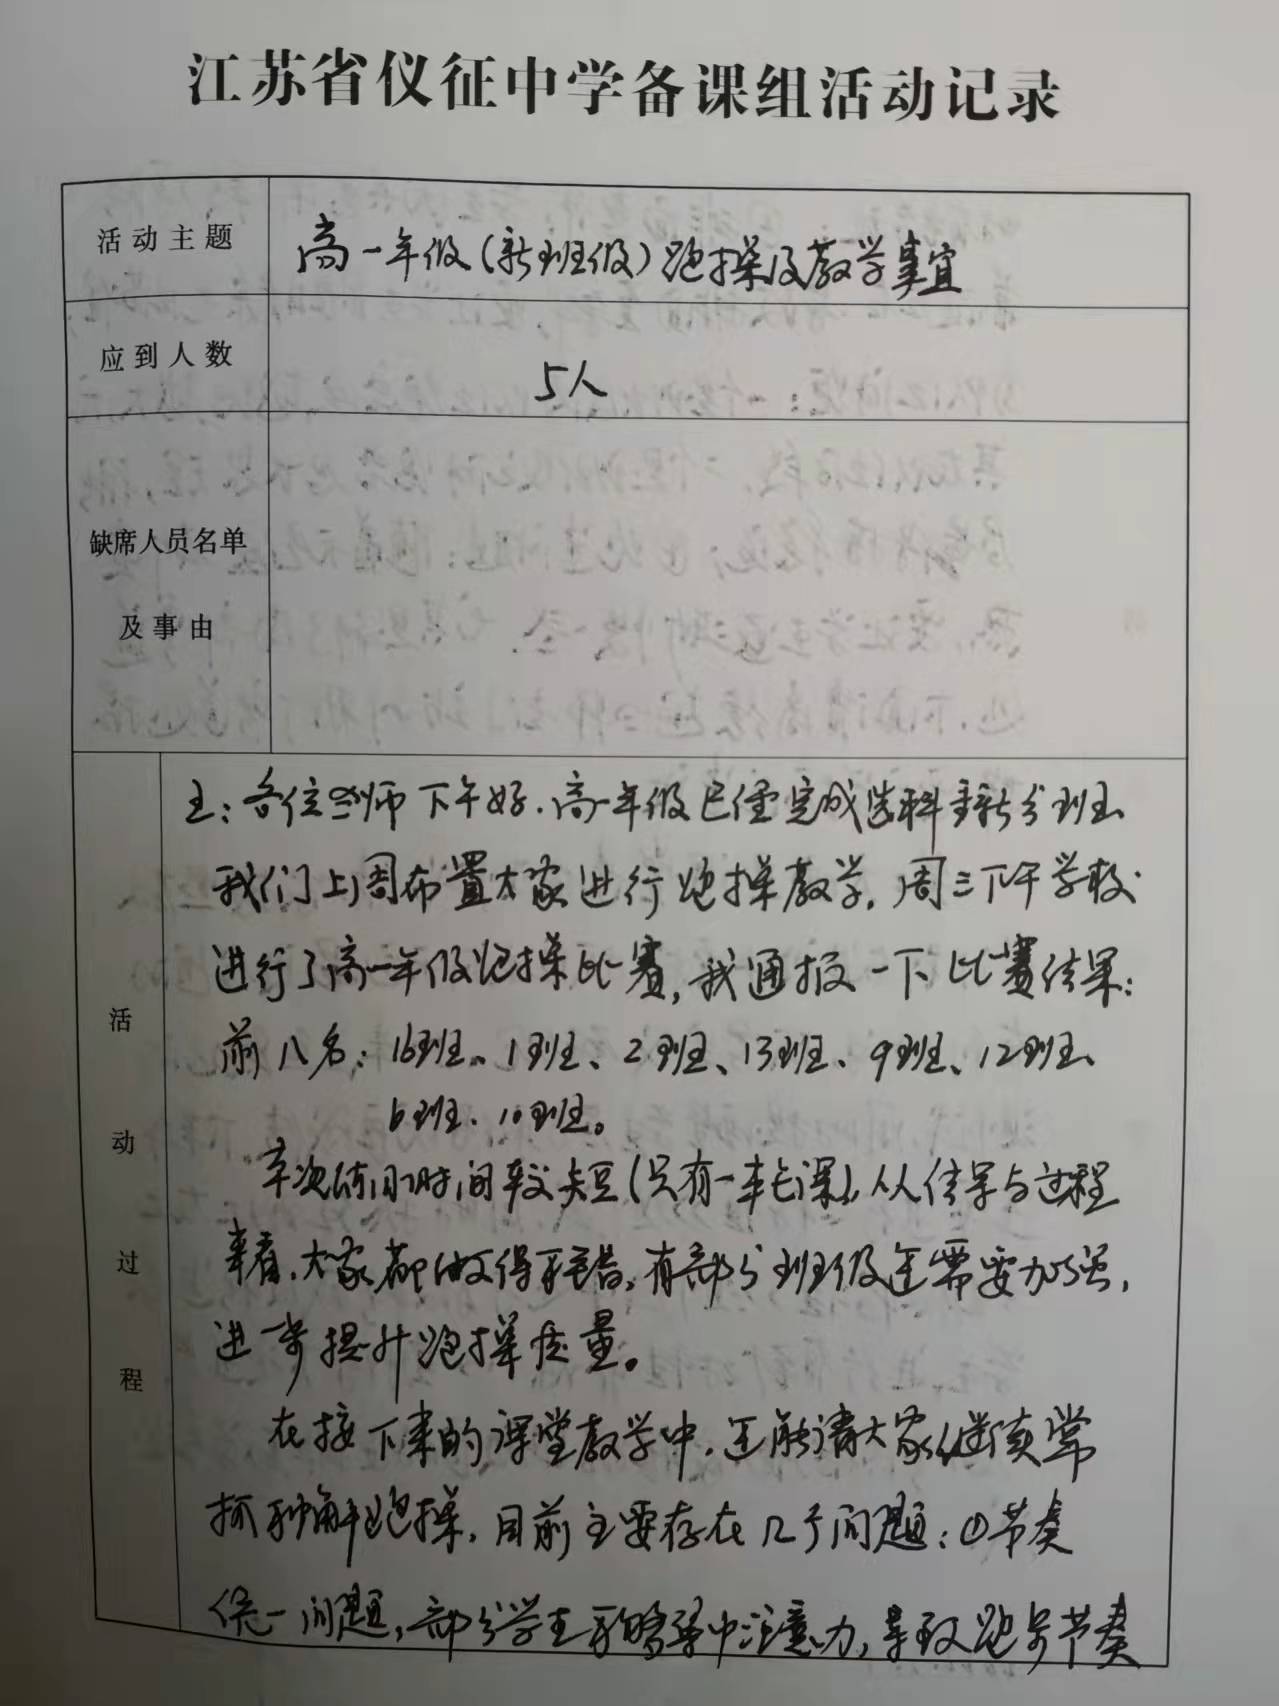 江苏省仪征中学备课组活动记录
活动主题
高一年级(新班级)跑操及教学事宜
应到人数
5人
缺席人员名单
及事由
活动过程
王:各位老师下午好.高一年级已经完成选科重新分班.
我们上周布置大家进行跑操教学,周三下午学校
进行了高一年级跑操比赛,我通报一下比赛结果:
前八名:16班、1班、2班、13班、9班、12班、
6班、10班。
本次练习时间较短(只有一车七课),从结果与过程
来看,大家都做得不错。有部分班级还需要加强,
进一步提升跑操质量。
在接下来的课堂教学中,还请大家继续常
抓不懈跑操,目前主要存在几个问题:①节奏
统一问题,部分学生不够集中注意力,导致跑步节奏